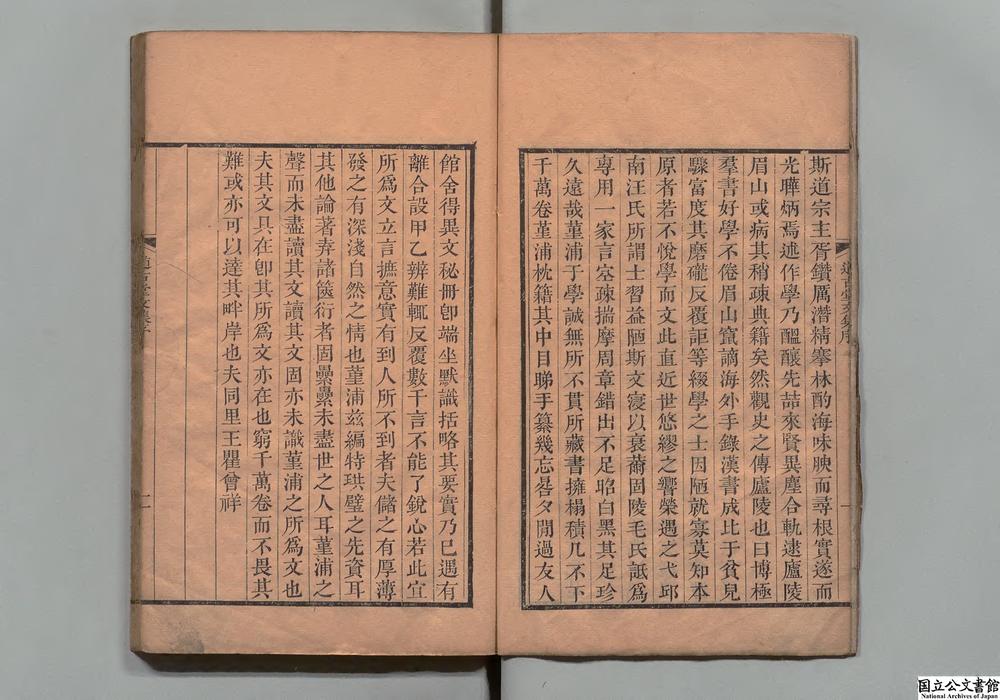 斯道宗主胥鑽厲潛精搴林酌海味腴而尋根實遂而
光曄炳焉述作學乃醞釀先喆來賢異塵合軌逮廬陵
眉山或病其稍疎典籍矣然觀史之傳廬陵也曰博極
羣書好學不倦眉山竄謫海外手錄漢書成比于貧兒
驟富度其磨礲反覆詎等綴學之士因陋就寡莫知本
原者若不悅學而文此直近世悠繆之響榮遇之弋邱
南汪氏所謂士習益陋斯文寖以衰薾固陵毛氏詆爲
專用一家言空疎揣摩周章錯出不足昭白黑其足珍
久遠哉菫浦于學誠無所不貫所藏書擁榻積几不下
千萬卷菫浦枕籍其中目睇手纂幾忘晷夕閒過友人
館舍得異文秘冊卽端坐默識括略其要實乃巳遇有
離合設甲乙辨難輒反覆數千言不能了銳心若此宜
所爲文立言摭意實有到人所不到者夫儲之有厚薄
發之有深淺自然之情也菫浦茲編特珙璧之先資耳
其他論著弆諸篋衍者固纍纍未盡世之人耳菫浦之
聲而未盡讀其文讀其文固亦未識菫浦之所爲文也
夫其文具在卽其所爲文亦在也窮千萬卷而不畏其
難或亦可以達其畔岸也夫同里王瞿曾祥
国立公文書館
National Archives of Japan